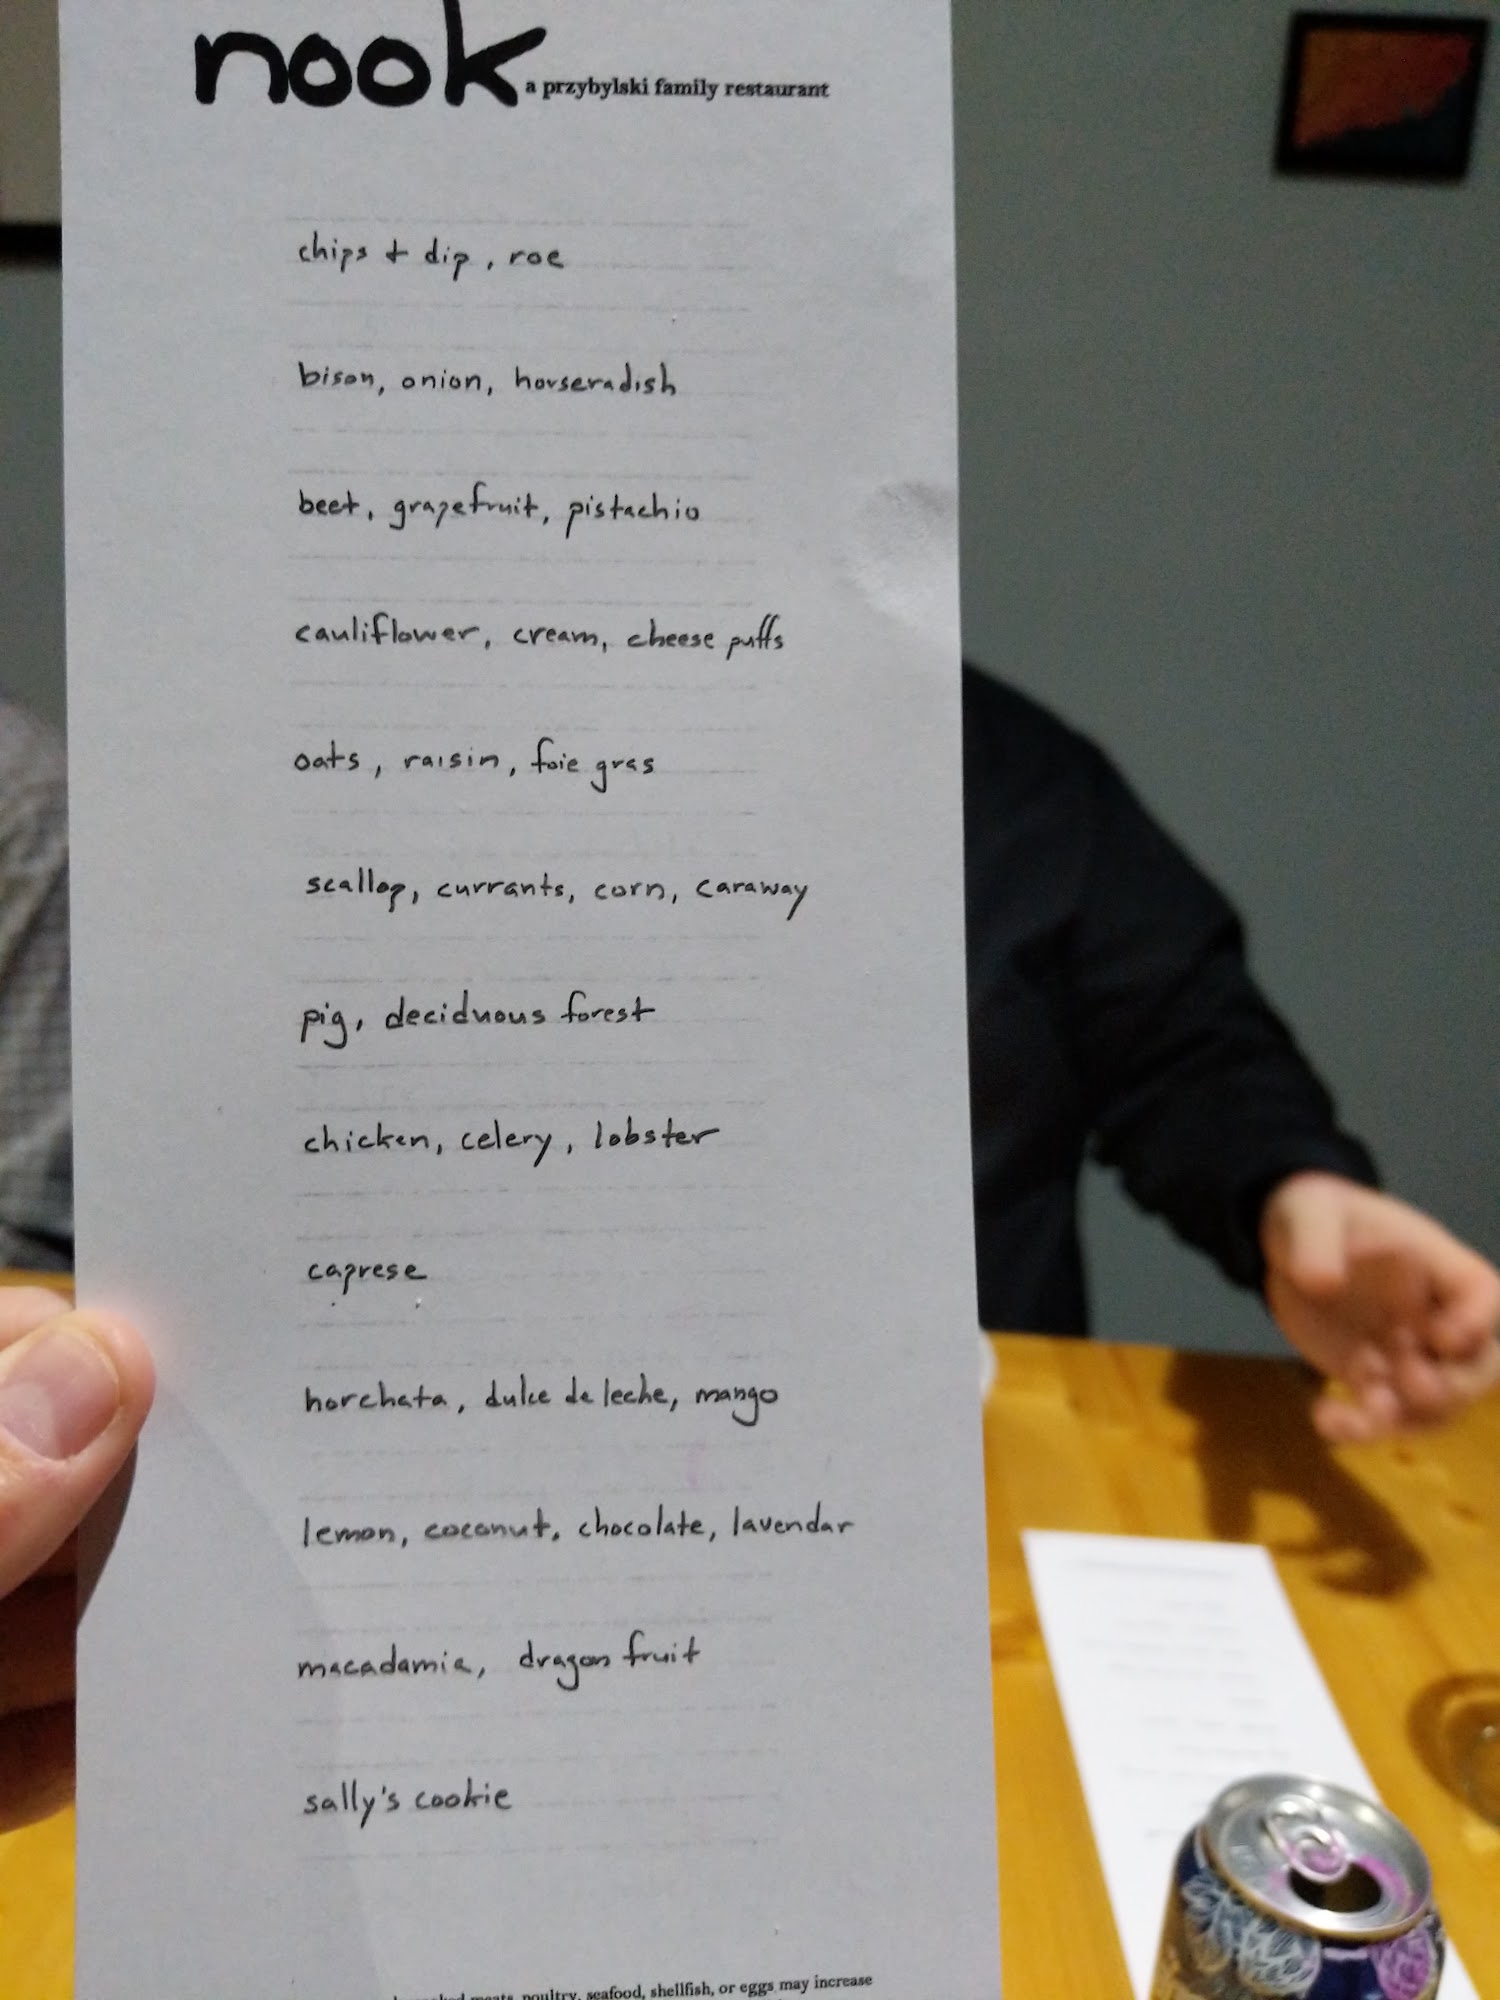 nook a przybylski family restaurant
chips + dip, roe
bison, onion, horseradish
beet, grapefruit, pistachio
cauliflower, cream, cheese puffs
oats, raisin, foie gras
scallop, currants, corn, caraway
pig, deciduous forest
chicken, celery, lobster
caprese
horchata, dulce de leche, mango
lemon, coconut, chocolate, lavendar
macadamia, dragon fruit
sally's cookie
meats, poultry, seafood, shellfish, or eggs may increase